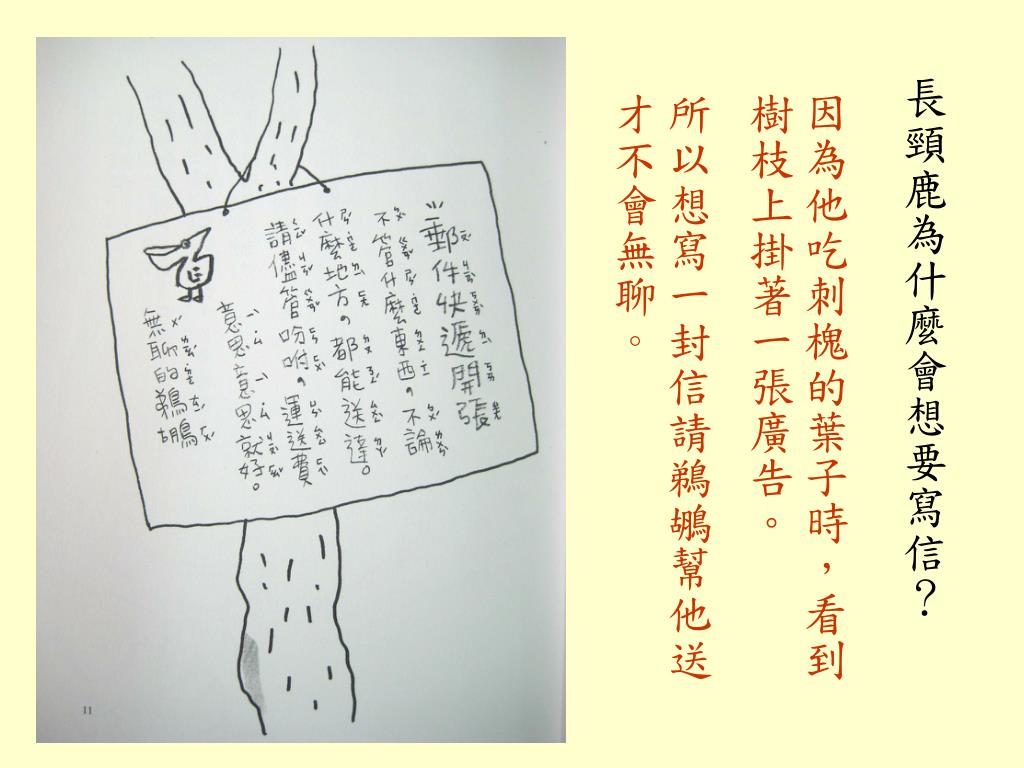 長頸鹿為什麼會想要寫信？
因為他吃刺槐的葉子時，看到
樹枝上掛著一張廣告。
所以想寫一封信請鵜鶘幫他送
才不會無聊。
郵件快遞開張
不管什麼東西，不論
什麼地方，都能送達。
請儘管吩咐，運送費
意思意思就好。
無聊的鵜鶘
11